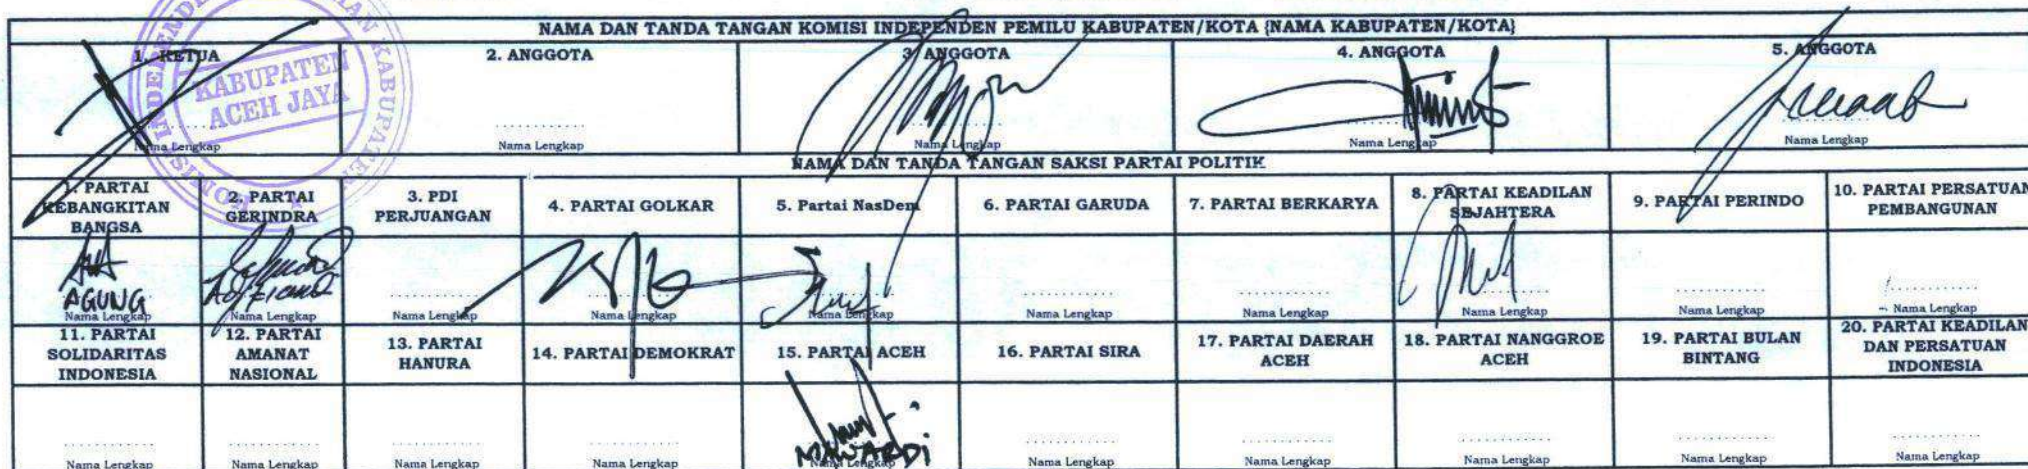 NAMA DAN TANDA TANGAN KOMISI INDEPENDEN PEMILU KABUPATEN/KOTA {NAMA KABUPATEN/KOTA}
1. KETUA 2. ANGGOTA 3. ANGGOTA 4. ANGGOTA 5. ANGGOTA
KABUPATEN
ACEH JAYA
Nama Lengkap Nama Lengkap Nama Lengkap Nama Lengkap Nama Lengkap
NAMA DAN TANDA TANGAN SAKSI PARTAI POLITIK
1. PARTAI KEBANGKITAN BANGSA 2. PARTAI GERINDRA 3. PDI PERJUANGAN 4. PARTAI GOLKAR 5. Partai NasDem 6. PARTAI GARUDA 7. PARTAI BERKARYA 8. PARTAI KEADILAN SEJAHTERA 9. PARTAI PERINDO 10. PARTAI PERSATUAN PEMBANGUNAN
AGUNG
Nama Lengkap Nama Lengkap Nama Lengkap Nama Lengkap Nama Lengkap Nama Lengkap Nama Lengkap Nama Lengkap Nama Lengkap Nama Lengkap
11. PARTAI SOLIDARITAS INDONESIA 12. PARTAI AMANAT NASIONAL 13. PARTAI HANURA 14. PARTAI DEMOKRAT 15. PARTAI ACEH 16. PARTAI SIRA 17. PARTAI DAERAH ACEH 18. PARTAI NANGGROE ACEH 19. PARTAI BULAN BINTANG 20. PARTAI KEADILAN DAN PERSATUAN INDONESIA
MAWARDi
Nama Lengkap Nama Lengkap Nama Lengkap Nama Lengkap Nama Lengkap Nama Lengkap Nama Lengkap Nama Lengkap Nama Lengkap Nama Lengkap